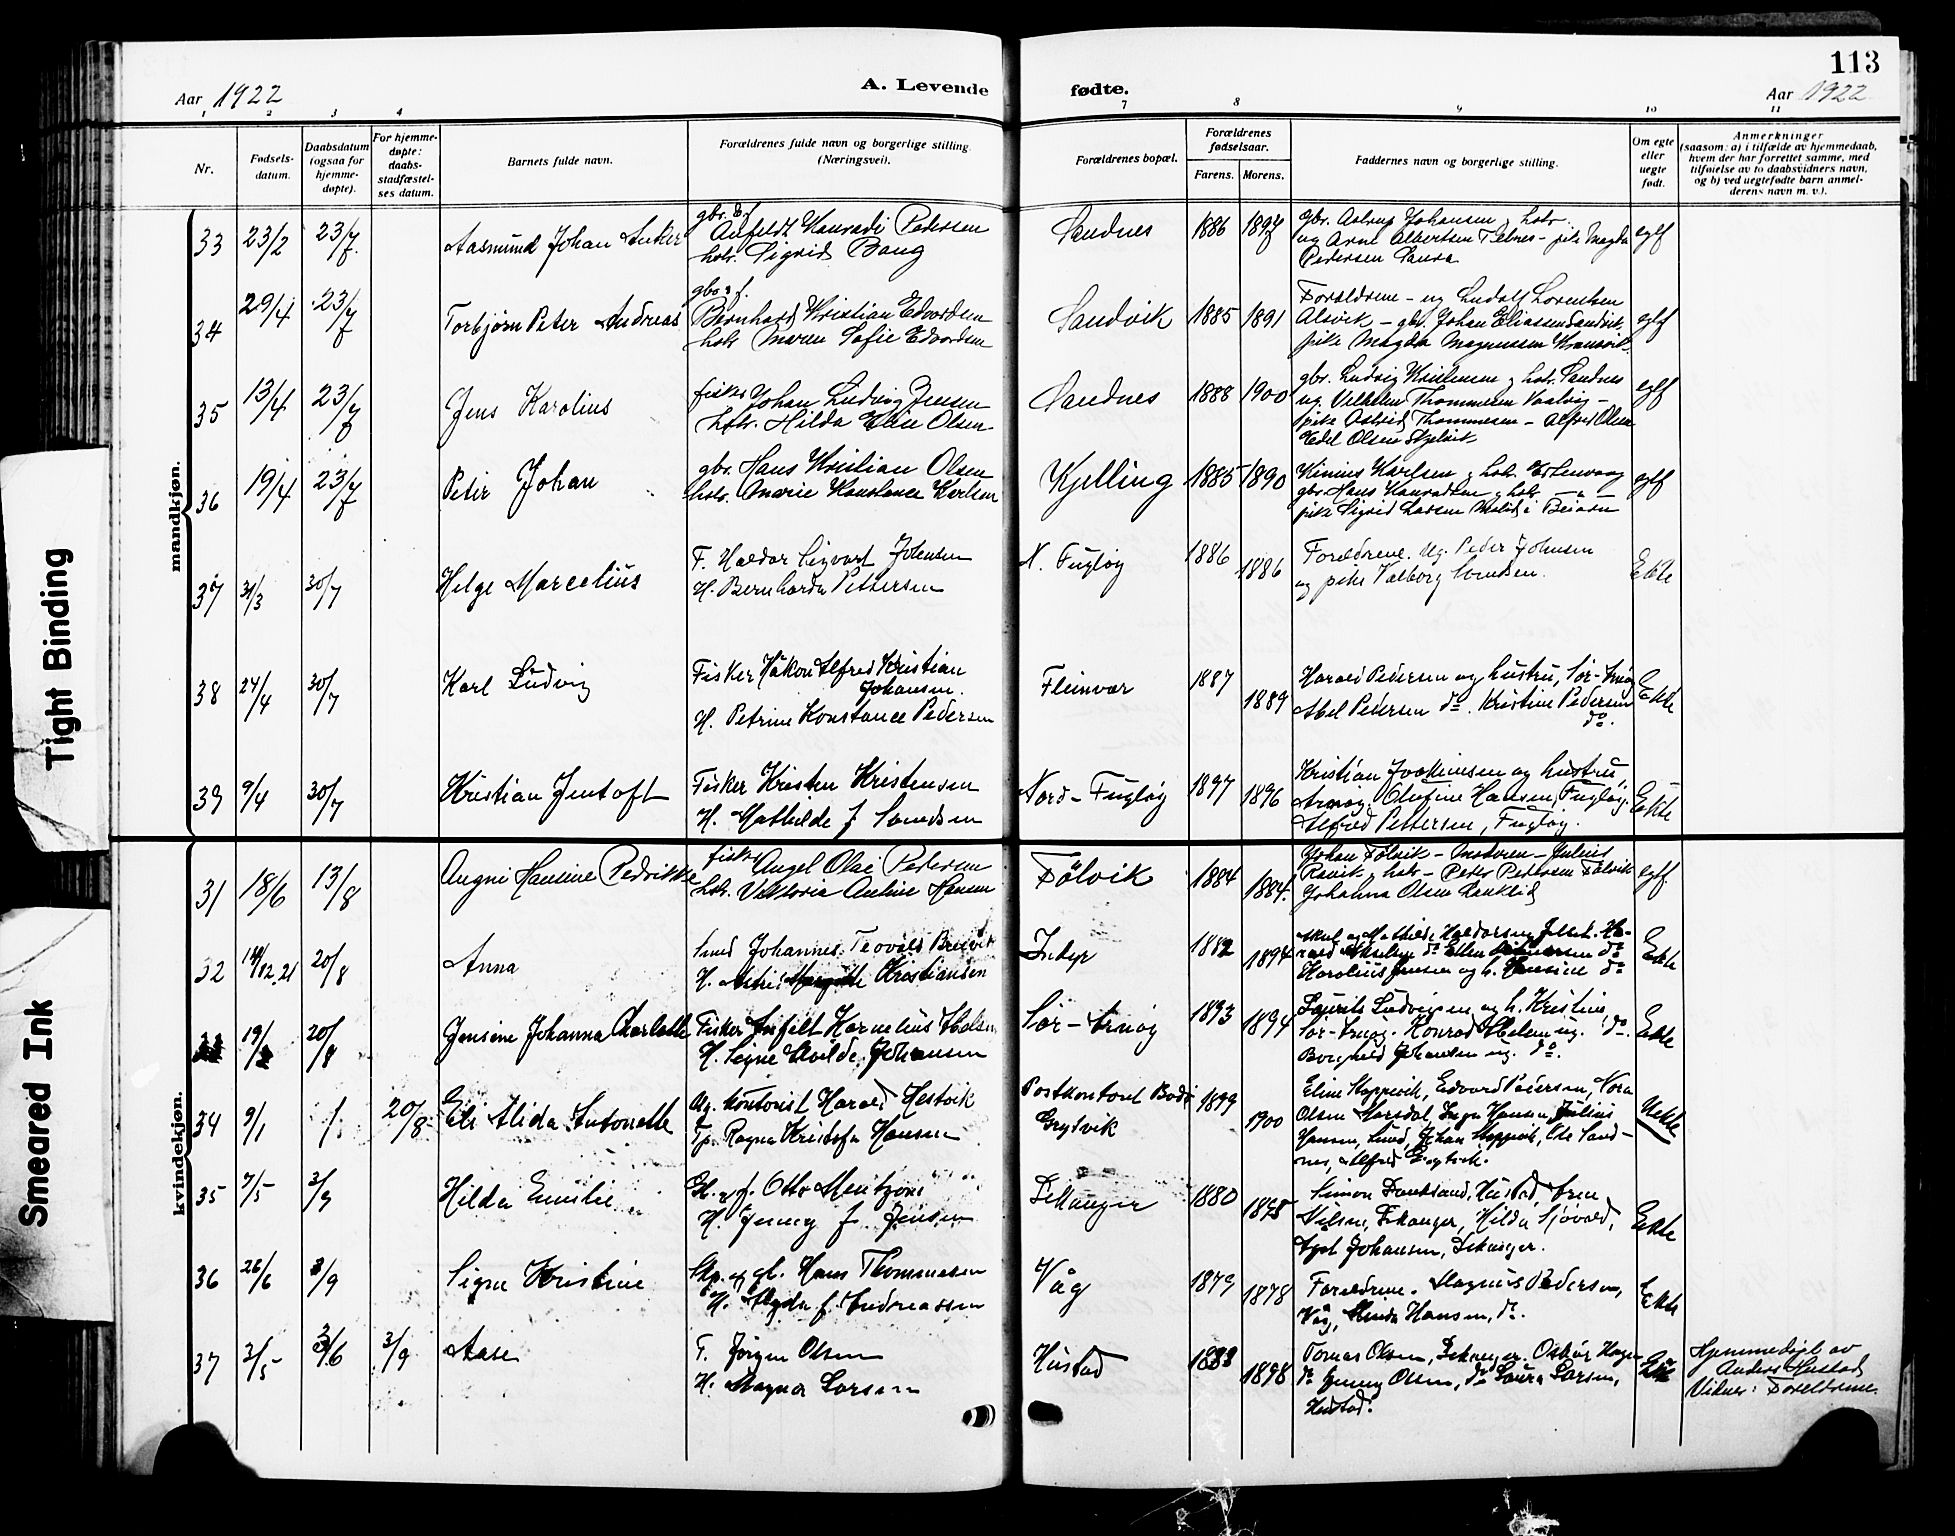 113
Aar 1922
A. Levende fødte.
Aar 1922
1 2 3 4 7 8 9 10 11
Nr.
Fødsels-
datum.
Daabsdatum
(ogsaa for
hjemme-
døpte).
For hjemme-
døpte:
daabs-
stadfæstel-
ses datum.
Barnets fulde navn.
Forældrenes fulde navn og borgerlige stilling.
(Næringsvei).
Forældrenes bopæl.
Forældrenes
fødselsaar.
Farens. Morens.
Faddernes navn og borgerlige stilling.
Om egte
eller
uegte
født.
Anmerkninger
(saasom: a) i tilfælde av hjemmedaab,
hvem der har forrettet samme, med
tilføielse av to daabsvidners navn,
og b) ved uegtefødte barn anmel-
derens navn m. v.).
mandkjøn.
33 23/2 23/7 Aasmund Johan Anker
gbr. & f.
Anfeldt Konradi Pedersen
hstr. Sigrid Bang
Sandnes 1886 1897
gbr. Astrup Johansen & hstr.
ug Arne Albertsen Telnes - pike Magda
Pedersen Saura
egtf
34 29/4 23/7 Torbjørn Peter Andreas
gbr & f.
Bernhard Kristian Edvardsen
hstr Maren Sofie Edvardsen
Sandvik 1885 1891
Forældrene - ug Ludolf Lorentsen
Alsvik - gbr. Johan Eliassen Sandvik
pike Magda Magnussen
egtf
35 13/4 23/7 Jens Karolius
fisker Johan Ludvig Jensen
hstr. Hilda Elise Olsen
Sandnes 1888 1900
gbr. Ludvig Kristensen & hstr. Sandnes
ug. Vilhelm Thommesen -
pike Astrid Thommesen - Alfred Olsen
Edel Olsen
egtf
36 19/4 23/7 Peter Johan
gbr. Hans Kristian Olsen
hstr. Marie Konstance Karlsen
Kjelling 1885 1890
Karlsen & hstr.
gbr. Hans Konradsen & hstr. - " -
pike Sigrid Larsen i Beiarn
egtf
37 31/3 30/7 Helge Marcelius
F. Haldor Sigvart Johensen
H. Bernharda Pettersen
N. Fugløy 1886 1886
Foreldrene. Ug. Peder Johnsen
og pike Valborg
Ekte
38 24/4 30/7 Karl Ludvig
Fisker Håkon Alfred Kristian
Johansen.
H. Petrine Konstance Pedersen
Fleinvær 1887 1889
Harald Pedersen og hustru, Sør-Arnøy
Abel Pedersen do. Kristine Pedersen
do.
Ekte
39 9/4 30/7 Kristian Jentoft
Fisker Kristen Kristensen
H. Mathilde f. Svendsen
Nord-Fugløy 1897 1896
Kristian Joakimsen og hustru,
Arnøy. Olufine Hansen, Fugløy.
Alfred Pettersen, Fugløy.
Ekte
kvindekjøn.
31 18/6 13/8 Angni Hansine Pedrikke
fisker Angel Olai Pedersen
hstr. Viktoria Auline Hansen
Fölvik 1884 1884.
Johan Fölvik - - Julius
Røsvik & hstr - Peder Pedersen Fölvik
Johanna Olsen
egtf.
32 14/12.21 20/8 Anna
Smed Johannes Teovald Breivik
H. Kristiansen
Indyr 1882 1894
Ekte
19/ 20/8 Jensine Johanna Charlotte
Fisker Anfelt Kornelius Abelsen
H. Signe Johansen
Sør-Arnøy 1893 1894
Laurits Ludvigsen og h. Kristine,
Sør-Arnøy. Konrad Abelsen ug. do.
Borghild Johansen ug. do.
Ekte
34 9/1 1/ 20/8 Eli Alida Antonette
Ug. Kontorist Harald Hestvik
Tp. Ragna Kristofa Hansen
Postkontoret Bodø
Grytvik
1899 1900
Eline Støpervik, Edvard Pedersen, Nora
Olsen Inga Hansen, Julius
Hansen, Sund, Johan Støpervik, Ole Sand-
nes, Alfred Grytvik.
Uekte
35 7/5 3/9 Hilda Emilie
Gb. & f. Otto Mentzoni
H. Jenny f. Jensen
Sekanger 1880
Simon Husstad,
Nilsen, Hilda Sjövold,
Johansen,
Ekte
36 26/6 3/9 Signe Kristine
Skp. og gb. Hans Thommesen
H. Magda f. Andreassen
Våg 1879 1878
Foreldrene. Magnus Pedersen,
Våg, Hansen, do.
Ekte
37 3/5 3/6 3/9 Aase
F. Jörgen Olsen
H. Magna Larsen
Hustad 1898
Tomas Olsen,
do Jenny Olsen, do Laura Larsen,
Hustad.
Ekte
Hjemmedøpt av
Anders Hustad
Vidner: Foreldrene
Tight Binding
Smeared Ink